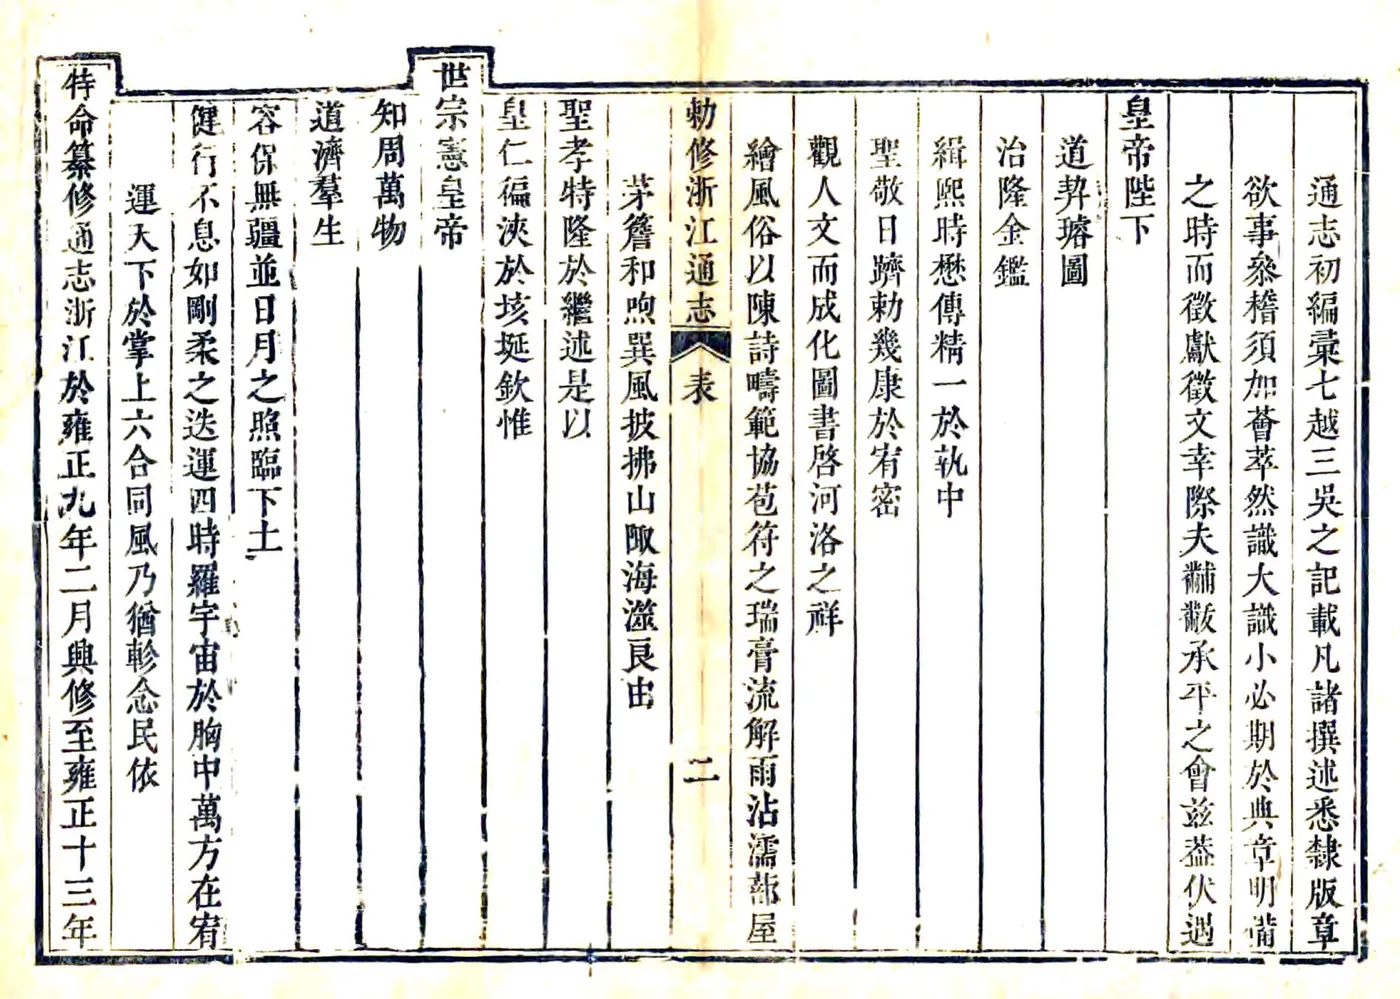 通志初編彙七越三吳之記載凡諸撰述悉隸版章
欲事叅稽須加薈萃然識大識小必期於典章明備
之時而徵獻徵文幸際夫黼黻承平之會兹葢伏遇
皇帝陛下
道契璿圖
治隆金鑑
緝熙時懋傳精一於執中
聖敬日躋勅幾康於宥密
觀人文而成化圖書啓河洛之祥
繪風俗以陳詩疇範協苞符之瑞膏流解雨沾濡蔀屋
勅修浙江通志 表 二
茅簷和煦巽風披拂山陬海澨良由
聖孝特隆於繼述是以
皇仁徧浹於垓埏欽惟
世宗憲皇帝
知周萬物
道濟羣生
容保無疆並日月之照臨下土
健行不息如剛柔之迭運四時羅宇宙於胸中萬方在宥
運天下於掌上六合同風乃猶軫念民依
特命纂修通志浙江於雍正九年二月興修至雍正十三年